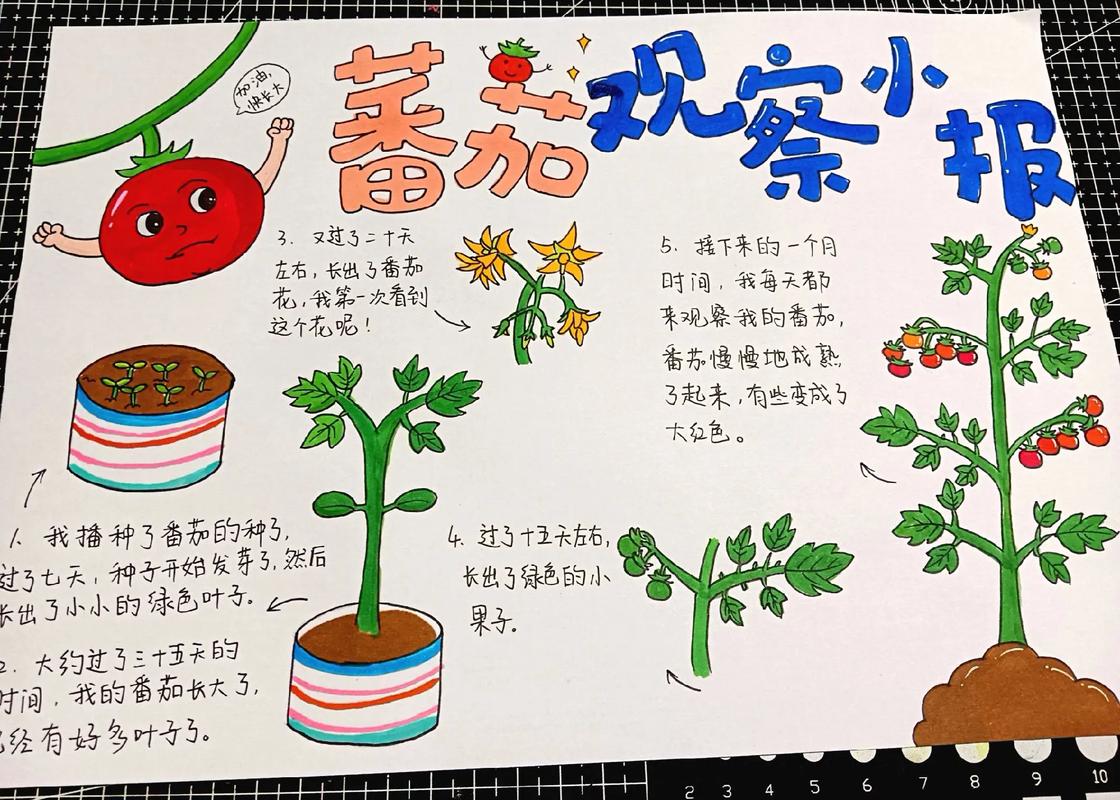 番茄观察小报
加油,
快长大
1. 我播种了番茄的种子,
过了七天,种子开始发芽了,然后
长出了小小的绿色叶子。
2. 大约过了三十五天的
时间,我的番茄长大了,
已经有好多叶子了。
3. 又过了二十天
左右,长出了番茄
花,我第一次看到
这个花呢!
4. 过了十五天左右,
长出了绿色的小
果子。
5. 接下来的一个月
时间,我每天都
来观察我的番茄,
番茄慢慢地成熟
了起来,有些变成了
大红色。
2 3 4 5 6 7 8 9 10